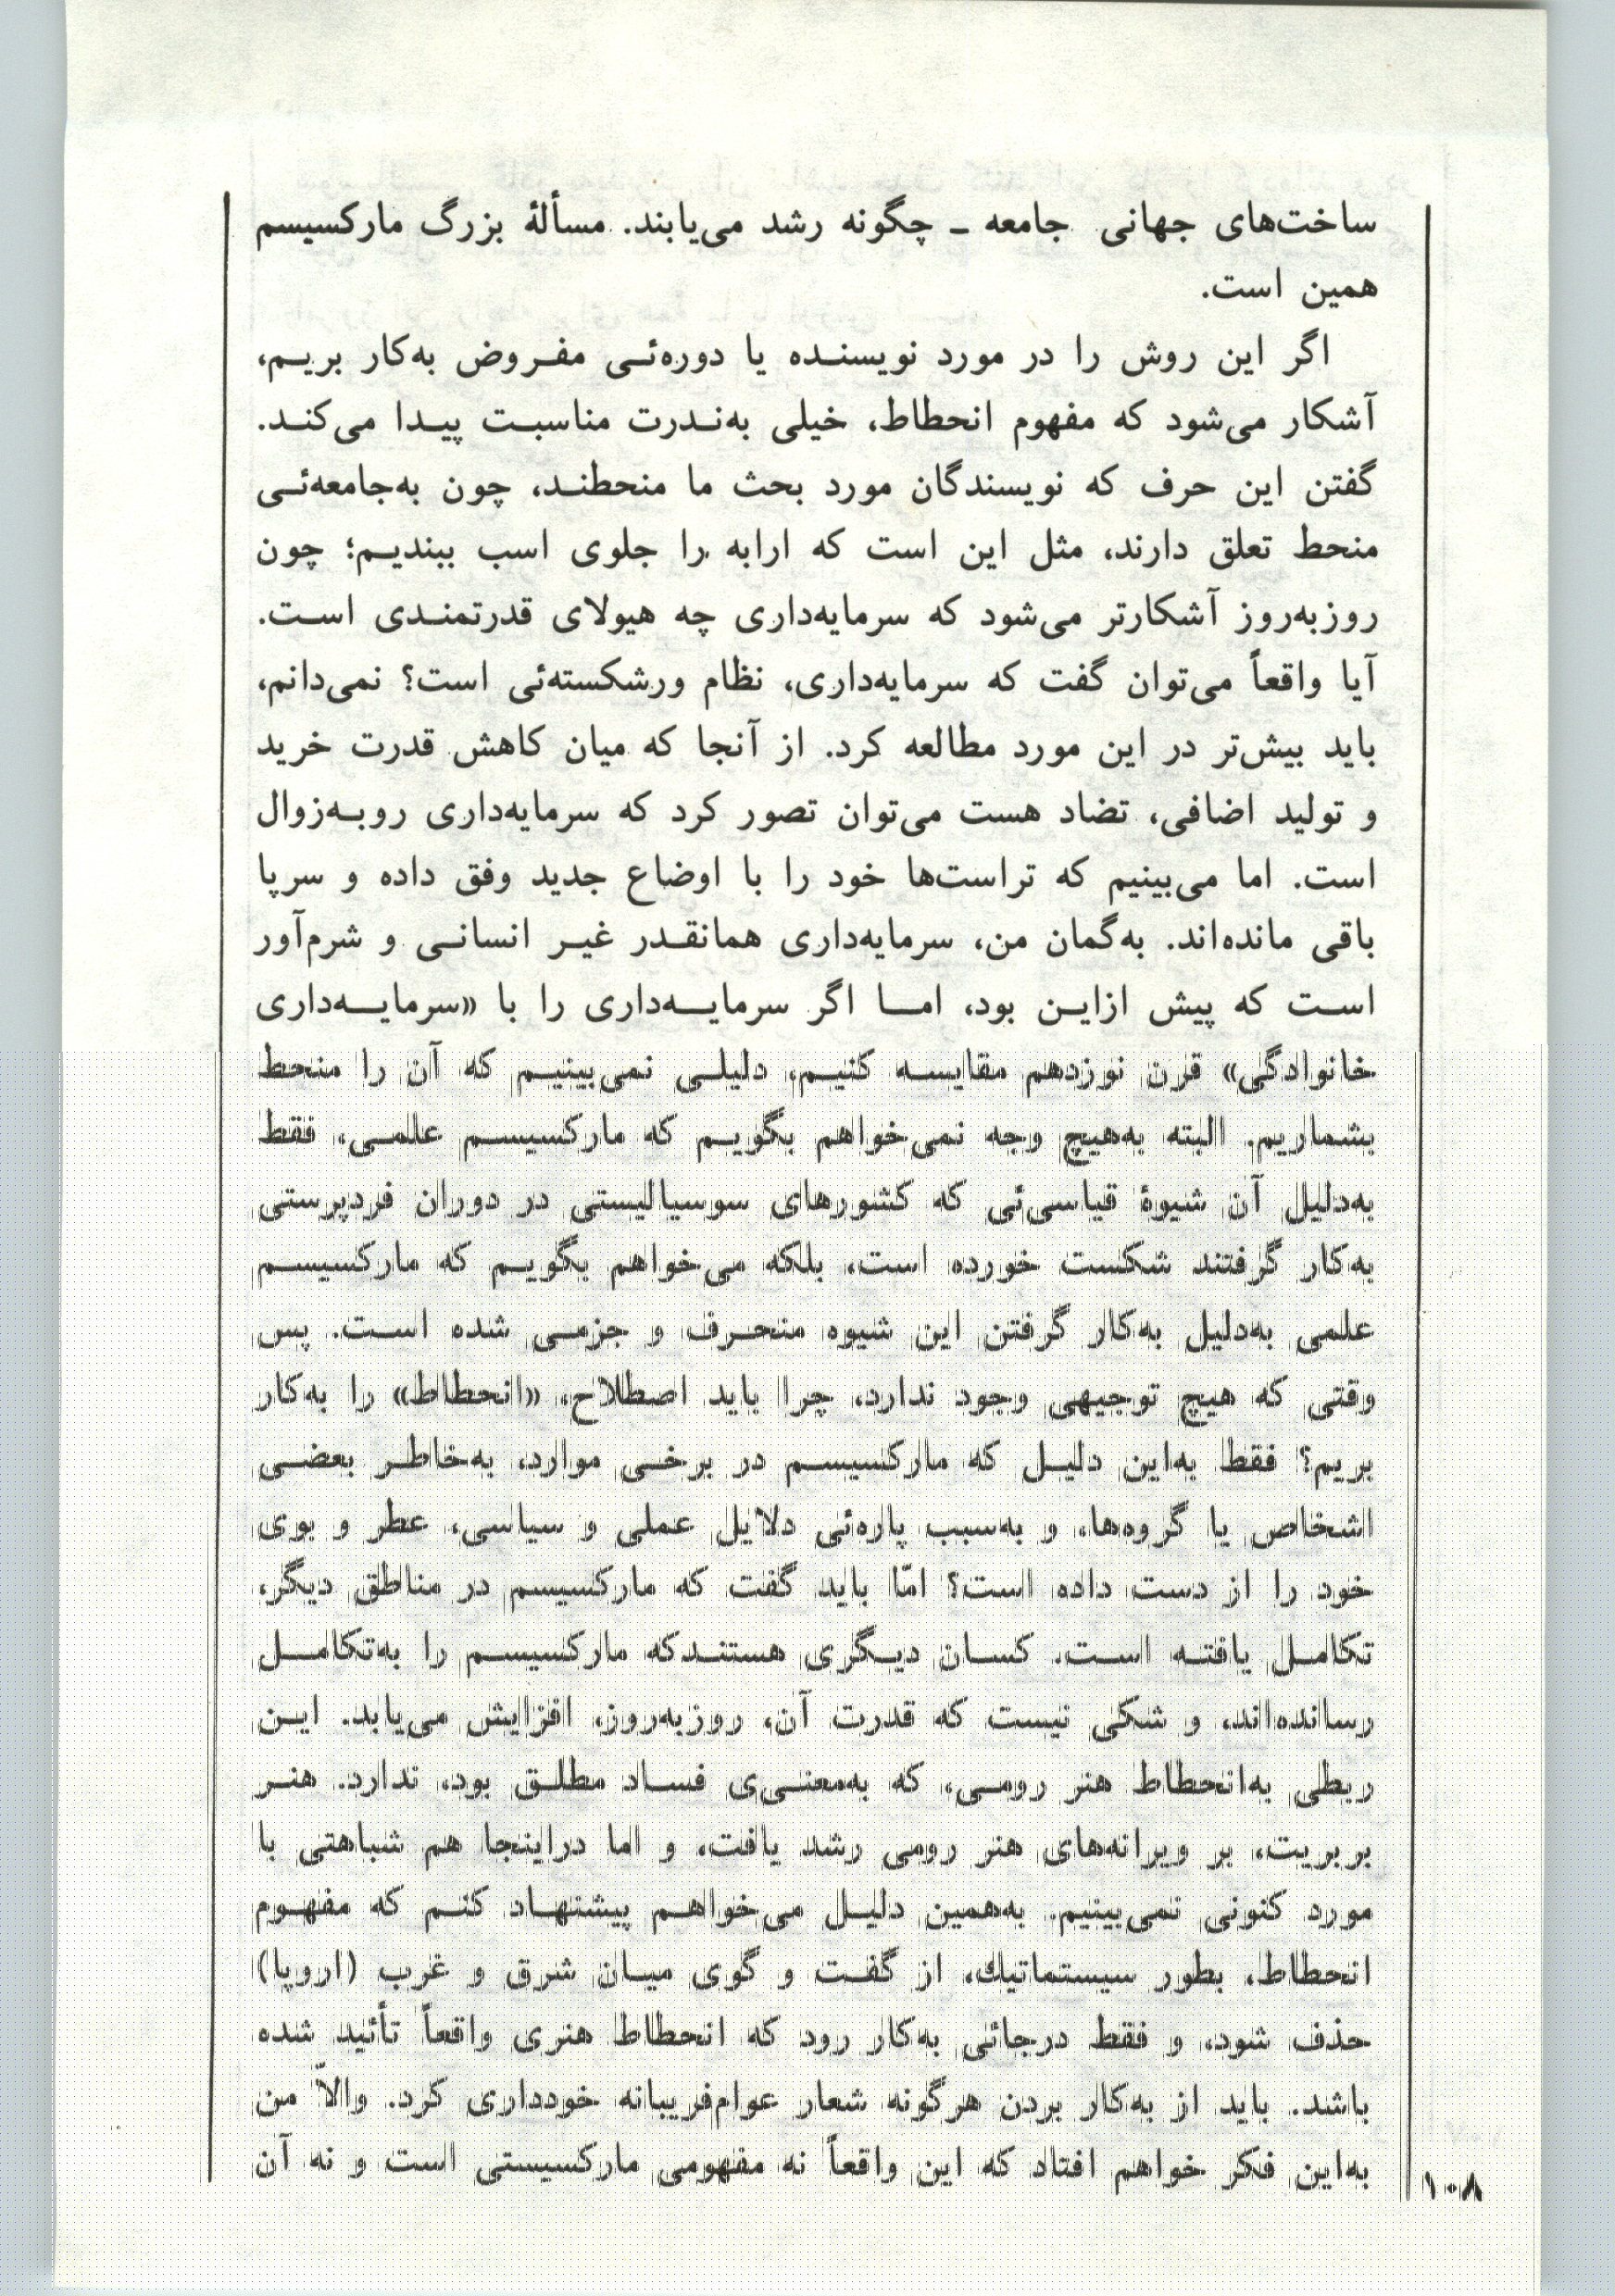 ساخت‌های جهانی جامعه ـ چگونه رشد می‌یابند. مسألهٔ بزرگ مارکسیسم
همین است.
اگر این روش را در مورد نویسنده یا دوره‌ئی مفروض به‌کار بریم،
آشکار می‌شود که مفهوم انحطاط، خیلی به‌ندرت مناسبت پیدا می‌کند.
گفتن این حرف که نویسندگان مورد بحث ما منحطند، چون به‌جامعه‌ئی
منحط تعلق دارند، مثل این است که ارابه را جلوی اسب ببندیم؛ چون
روزبه‌روز آشکارتر می‌شود که سرمایه‌داری چه هیولای قدرتمندی است.
آیا واقعاً می‌توان گفت که سرمایه‌داری، نظام ورشکسته‌ئی است؟ نمی‌دانم،
باید بیش‌تر در این مورد مطالعه کرد. از آنجا که میان کاهش قدرت خرید
و تولید اضافی، تضاد هست می‌توان تصور کرد که سرمایه‌داری روبه‌زوال
است. اما می‌بینیم که تراست‌ها خود را با اوضاع جدید وفق داده و سرپا
باقی مانده‌اند. به‌گمان من، سرمایه‌داری همانقدر غیر انسانی و شرم‌آور
است که پیش ازاین بود، اما اگر سرمایه‌داری را با «سرمایه‌داری
خانوادگی» قرن نوزدهم مقایسه کنیم، دلیلی نمی‌بینیم که آن را منحط
بشماریم. البته به‌هیچ وجه نمی‌خواهم بگویم که مارکسیسم علمی، فقط
به‌دلیل آن شیوهٔ قیاسی‌ئی که کشورهای سوسیالیستی در دوران فردپرستی
به‌کار گرفتند شکست خورده است، بلکه می‌خواهم بگویم که مارکسیسم
علمی به‌دلیل به‌کار گرفتن این شیوه منحرف و جزمی شده است. پس
وقتی که هیچ توجیهی وجود ندارد، چرا باید اصطلاح، «انحطاط» را به‌کار
بریم؟ فقط به‌این دلیل که مارکسیسم در برخی موارد، به‌خاطر بعضی
اشخاص یا گروه‌ها، و به‌سبب پاره‌ئی دلایل عملی و سیاسی، عطر و بوی
خود را از دست داده است؟ امّا باید گفت که مارکسیسم در مناطق دیگر،
تکامل یافته است. کسان دیگری هستندکه مارکسیسم را به‌تکامل
رسانده‌اند، و شکی نیست که قدرت آن، روزبه‌روز، افزایش می‌یابد. این
ربطی به‌انحطاط هنر رومی، که به‌معنی‌ی فساد مطلق بود، ندارد. هنر
بربریت، بر ویرانه‌های هنر رومی رشد یافت، و اما دراینجا هم شباهتی با
مورد کنونی نمی‌بینیم. به‌همین دلیل می‌خواهم پیشنهاد کنم که مفهوم
انحطاط، بطور سیستماتیك، از گفت و گوی میان شرق و غرب (اروپا)
حذف شود، و فقط درجائی به‌کار رود که انحطاط هنری واقعاً تأئید شده
باشد. باید از به‌کار بردن هرگونه شعار عوام‌فریبانه خودداری کرد. والاّ من
به‌این فکر خواهم افتاد که این واقعاً نه مفهومی مارکسیستی است و نه آن
۱۰۸